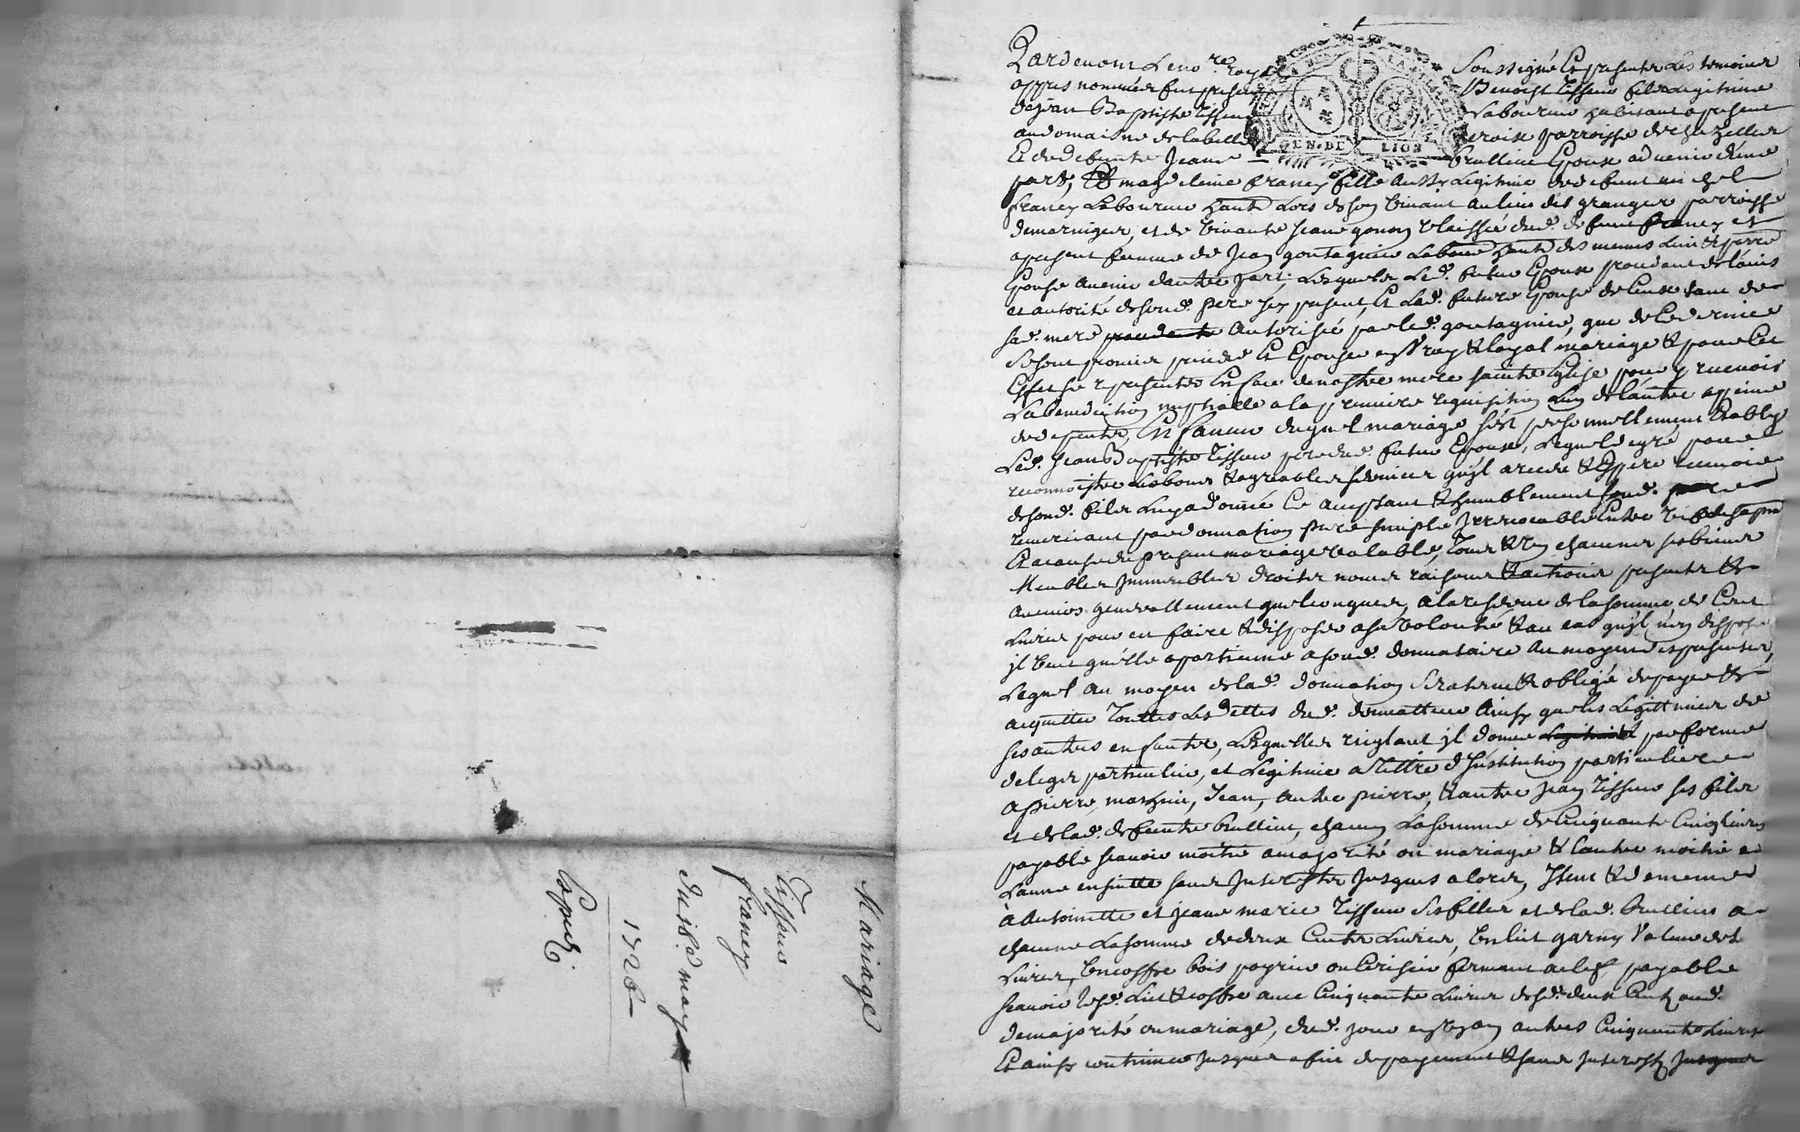 Mariage
Tisseur
franey
Du 18e. may
1726
Copié
GEN. DE LION
Pardevant Le no.re royal Soussigné Et presents Les temoins
appres nommés fut present Benoist Tisseur fils Legitime
de Jean Baptiste Tisseur Laboureur habitant a present
au domaine de la belle croix parroisse de chazelles
Et de defunte Jeanne Brullion Epoux advenir d'une
part, Et magdeleine franey fille aussy Legitime de defunt michel
franey Laboureur hant. Lors de son vivant au lieu des granges parroisse
de maringes, et de vivante Jeane gonon v laissée dud. defunt franey et
a present femme de Jean goutagnieu Laboureur hant. des memes Lieu & parre.
Epouse avenir d'autre part; Lesquels Led. futur Epoux procedant de l'avis
et autorité de sond. pere icy present, Et Lad. future Epouse de Ceux tant de
sad. mere procedante Autorisée par led. goutagnieu, que de Ce dernier
Se sont promis prendre Et Epouser en vray & loyal mariage & pour Cet
Effet se representer En face de nostre mere sainte Eglise pour y recevoir
La benediction nuptialle a la premiere requisition L'un de l'autre a peine
de depents, En faveur duquel mariage s'est personnellement Etably
Led. Jean Baptiste Tisseur pere dud. futur Epoux, Lequel de gré pour
reconnoistre Les bons & agreables services qu'il a receu & Espere recevoir
de sond. fils Luy a donné Ce acceptant & humblement sond. pere
remerciant par donnation pure simple Irrevocable Entre vifs
Et a cause de present mariage valable, Tous & un chacuns ses biens
Meubles Immeubles droits noms raisons & actions presents &
avenirs generallement quelconques, a la reserve de la somme de Cent
Livres pour en faire & disposer a sa volonté & au cas qu'il n'en dispose
il veut qu'elle apartienne a sond. donnataire au moyen des presentes,
Lequel au moyen de lad. donnation sera tenu & obligé de payer &
acquitter Toutes Les dettes dud. donnatteur Ainsy que les Legittimes de
ses autres enfants, Lesquelles reiglant il donne Legitime par forme
de legs particulier, et Legitime a tittre d'Institution particuliere
a pierre, mathieu, Jean, autre pierre, & autre Jean Tisseur ses fils
et de lad. defunte Brullion, chacun La somme de Cinquante Cinq livres
payable scavoir moitié a majorité ou mariage & l'autre moitié a
L'année ensuitte sans Interests Jusques alors, Item & de meme
a Antoinette et Jeanne marie Tisseur ses filles et de lad. Brullion a
chacune La somme de deux Cents Livres, Un lit garny valeur de
Livres, Un coffre bois poyrier ou Cerisier fermant a clef payable
scavoir Lesd. Lict & coffre avec Cinquante Livres desd. deux Cents aud.
de majorité ou mariage, dud. jour en un an autres Cinquante Livres
Et ainsy continuer Jusques a fin de payement & sans Interests Jusques